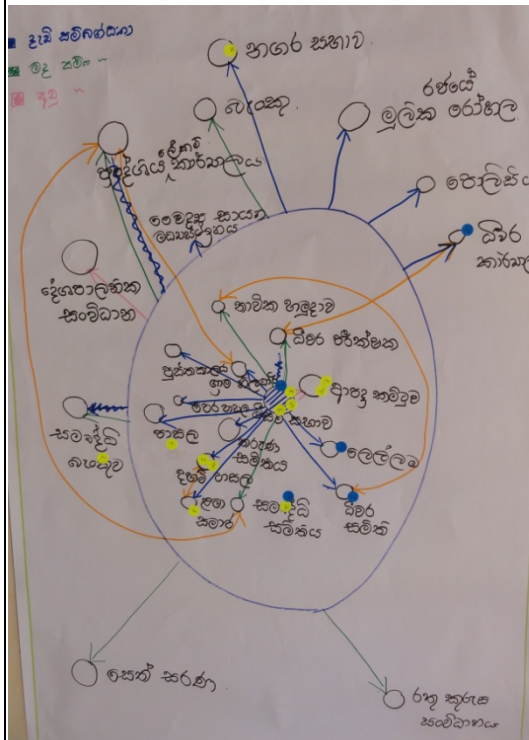 දැඩි සම්බන්ධතා
මද සම්
අඩු
නගර සභාව
බැංකු
රජයේ
මූලික රෝහල
ප්‍රාදේශීය ලේකම් කාර්යාලය
පොලීසිය
වෛද්‍ය සායන
මධ්‍යස්ථානය
ධීවර
දේශපාලනික
සංවිධාන
නාවික හමුදාව
ධීවර පරීක්ෂක
පුස්තකාල
ග්‍රාම
ආපදා කමිටුව
සභාව
සමෘද්ධි
පාසල
තරුණ
සමිතිය
ලෙල්ලම
දහම් පාසල
ළමා
සමාජ
සමෘද්ධි
සමිතිය
ධීවර
සමිති
සෙත් සරණ
රතු කුරුස
සංවිධානය